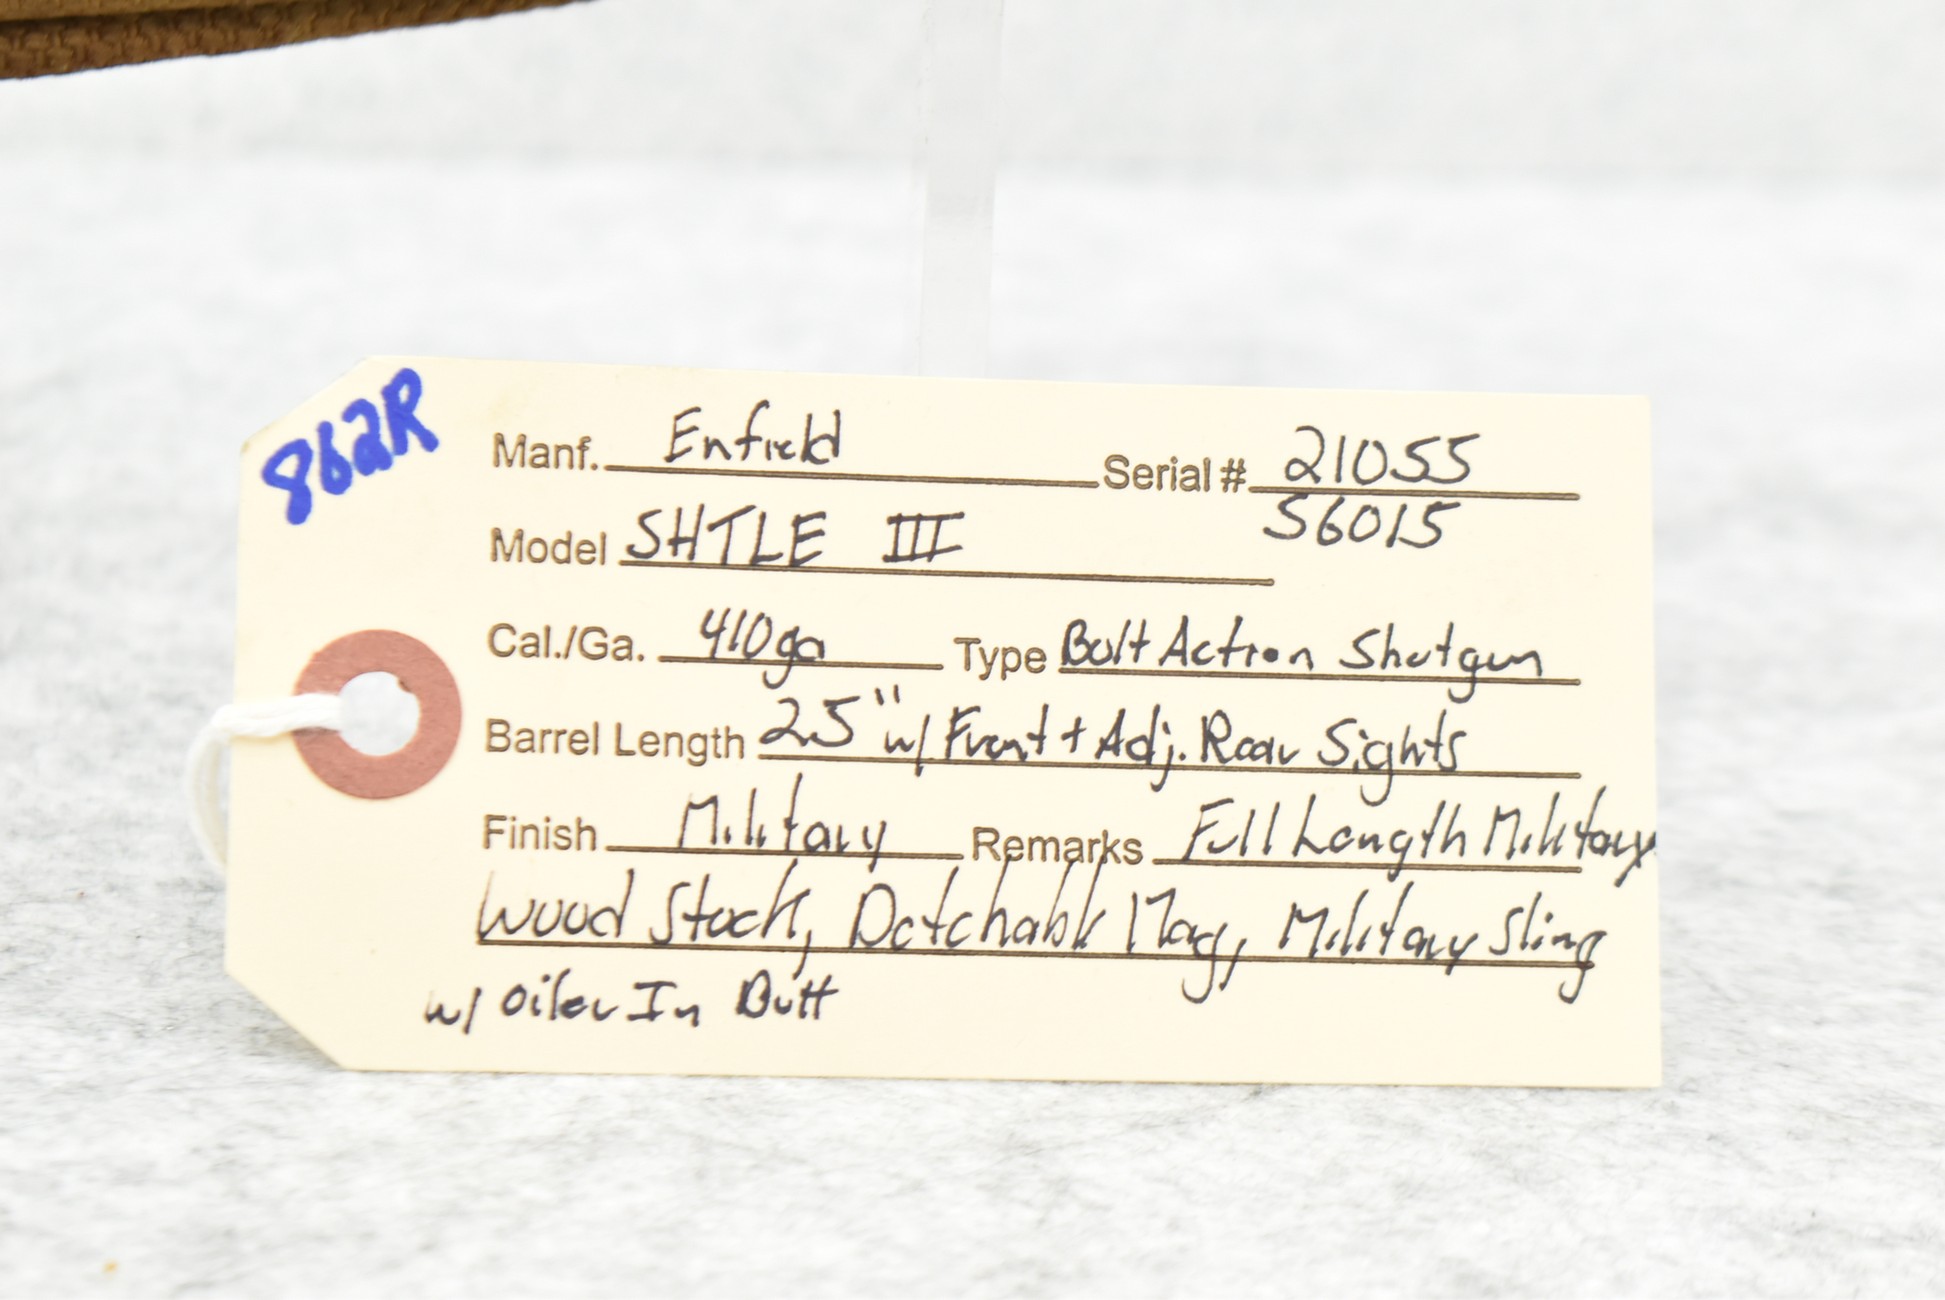 862R
Manf. Enfield Serial # 21055
56015
Model SHTLE III
Cal./Ga. 410ga Type Bolt Action Shotgun
Barrel Length 25" w/ Front + Adj. Rear Sights
Finish Military Remarks Full Length Military
Wood Stock, Detchable Mag, Military Sling
w/ Oiler In Butt